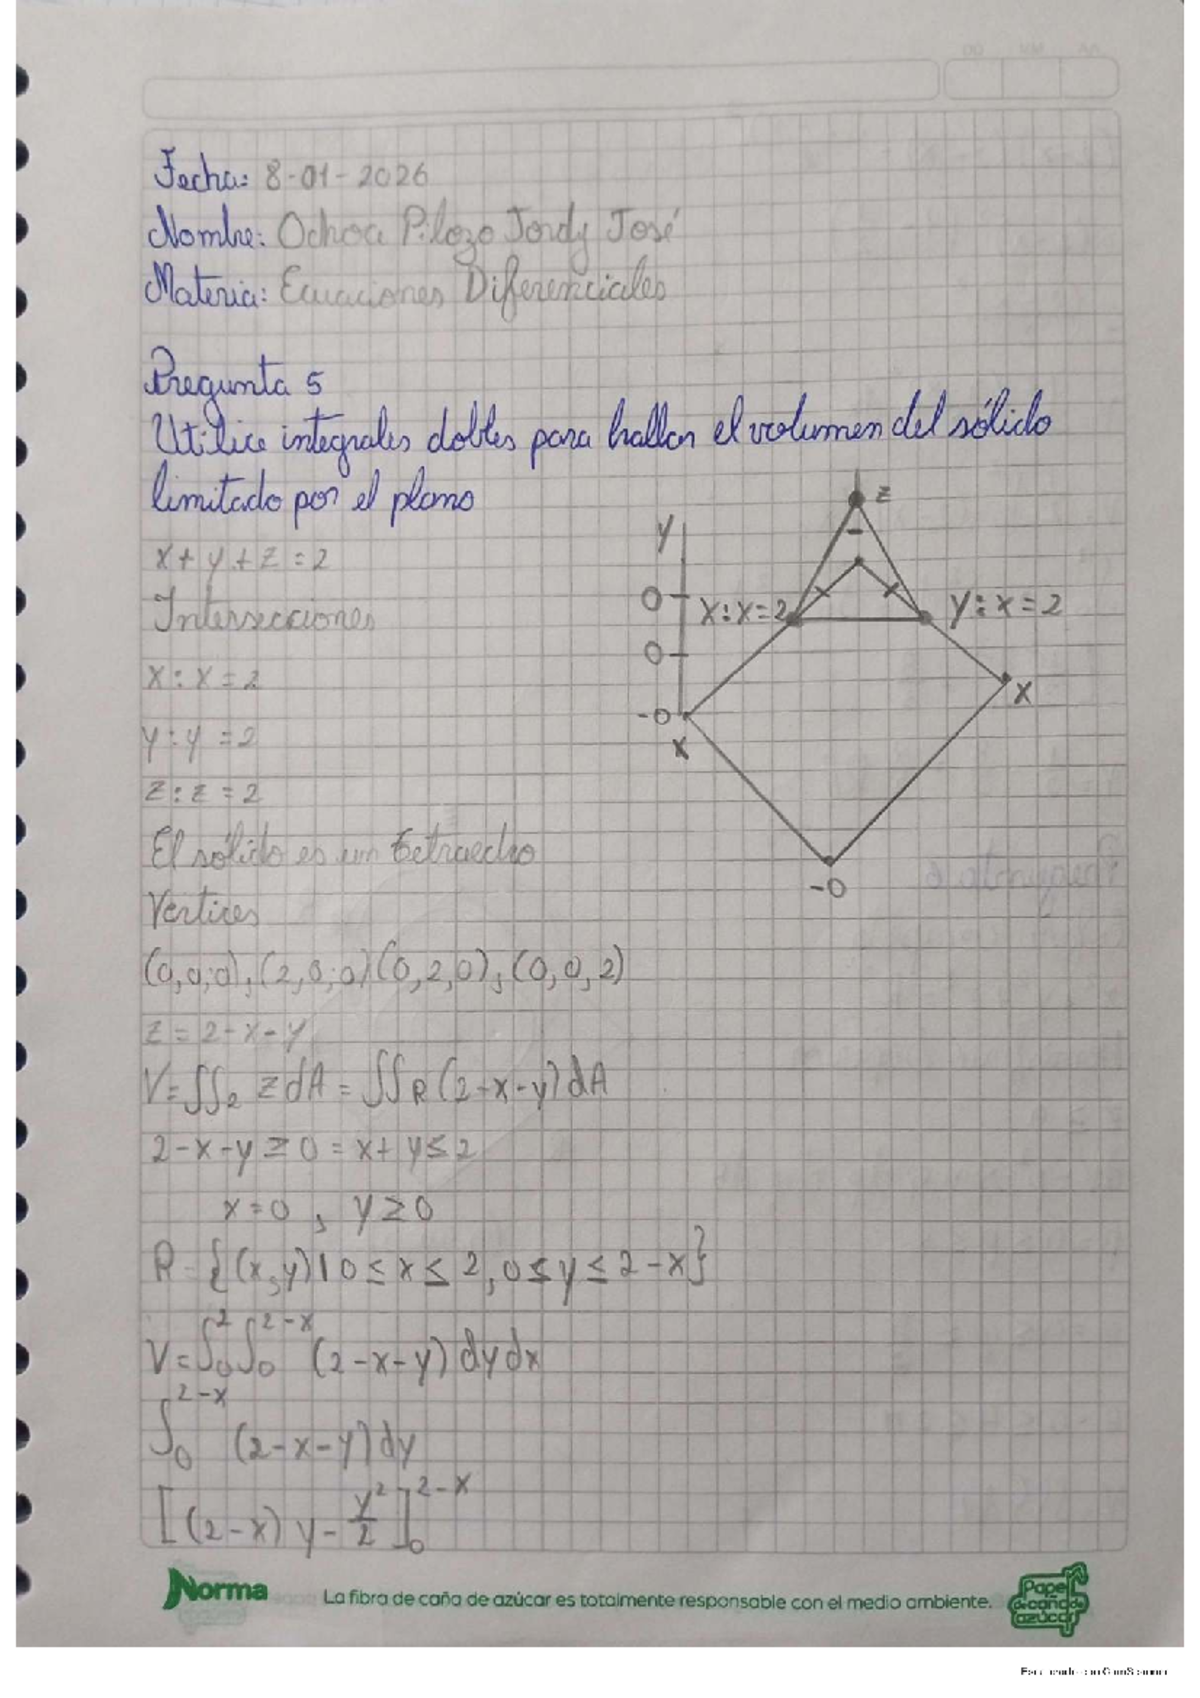 Fecha: 8-01-2026
Nombre: Ochoa Pilozo Jordy José
Materia: Ecuaciones Diferenciales
Pregunta 5
Utilice integrales dobles para hallar el volumen del sólido
limitado por el plano
x + y + z = 2
Intersecciones
x : x = 2
y : y = 2
z : z = 2
El sólido es un tetraedro
Vertices
(0,0,0), (2,0,0) (0,2,0), (0,0,2)
z = 2-x-y
V = ∬₂ z dA = ∬R (2-x-y) dA
2-x-y ≥ 0 = x + y ≤ 2
x = 0 , y ≥ 0
R = {(x,y) | 0 ≤ x ≤ 2, 0 ≤ y ≤ 2-x}
V = ∫₀² ∫₀^{2-x} (2-x-y) dy dx
∫₀^{2-x} (2-x-y) dy
[(2-x) y - y²/2]₀^{2-x}
z
y
0
x : x = 2
y : x = 2
0
-0
x
x
-0
Norma
La fibra de caña de azúcar es totalmente responsable con el medio ambiente.
Papel
de caña de
azúcar